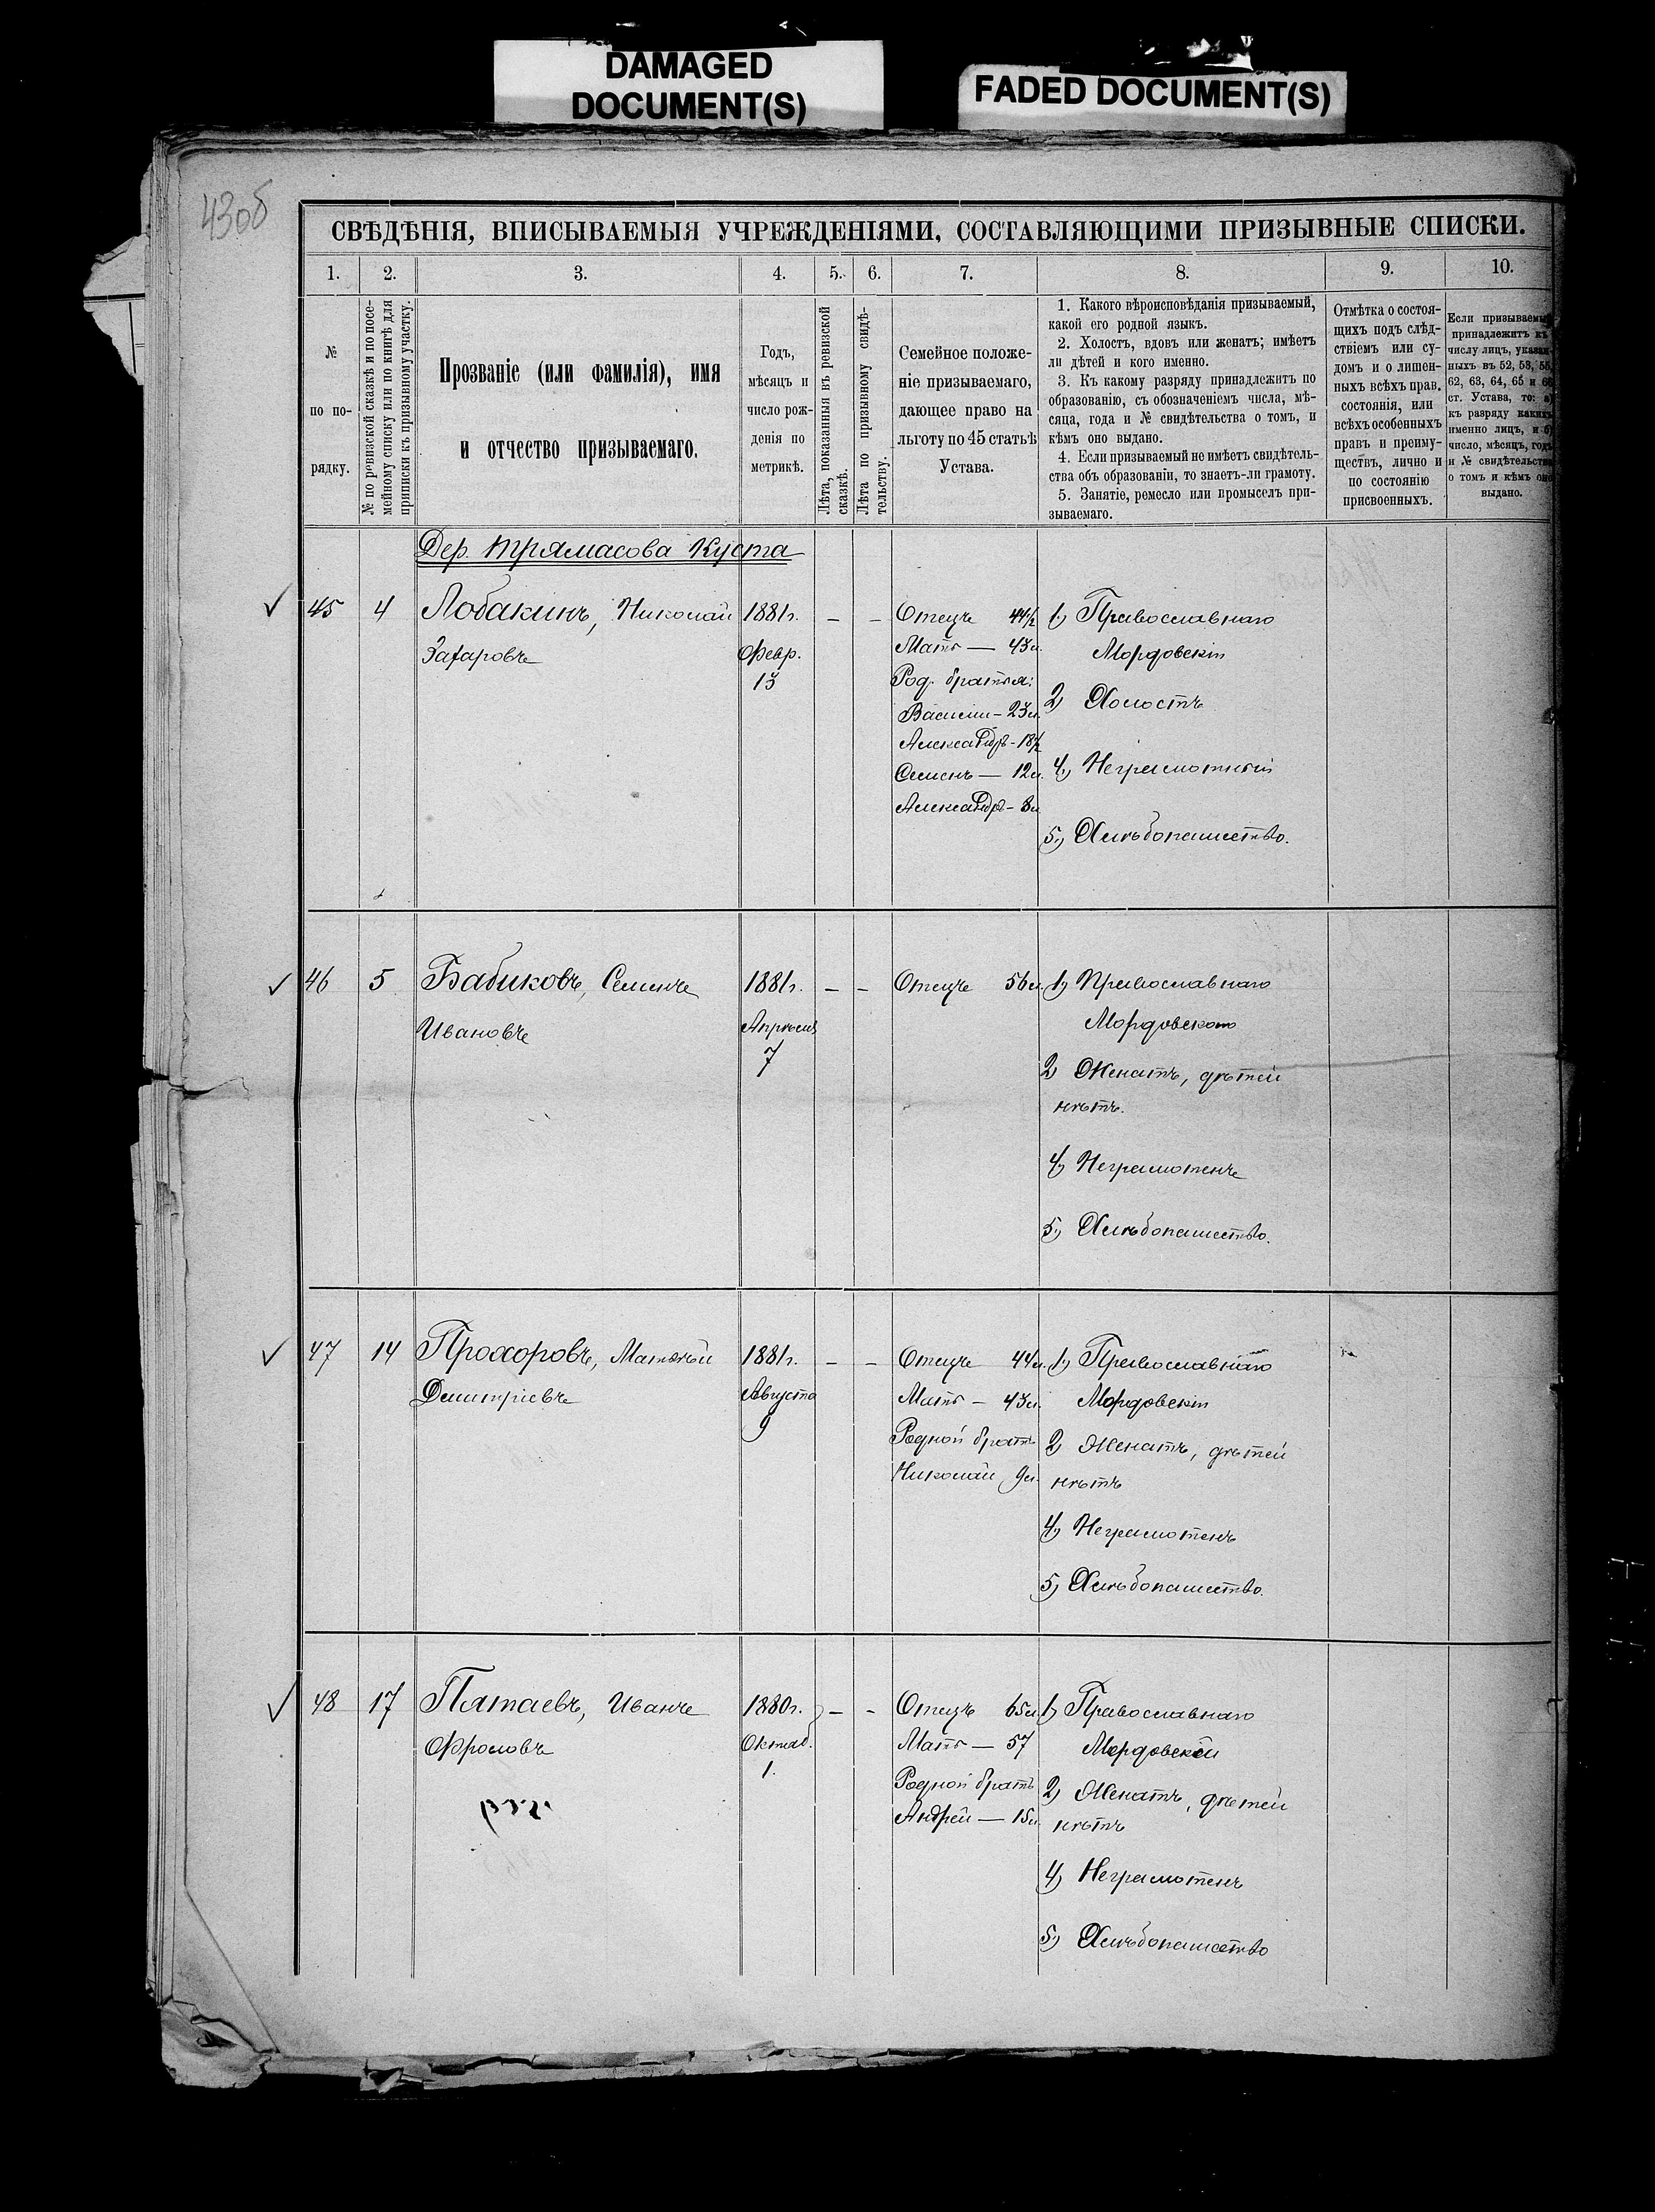 DAMAGED
DOCUMENT(S)
FADED DOCUMENT(S)
43об
СВѢДѢНІЯ, ВПИСЫВАЕМЫЯ УЧРЕЖДЕНІЯМИ, СОСТАВЛЯЮЩИМИ ПРИЗЫВНЫЕ СПИСКИ.
1. 2. 3. 4. 5. 6. 7. 8. 9. 10.
№
по по-
рядку.
№ по ревизской сказкѣ и по посе-
мейному списку или по книгѣ для
приписки къ призывному участку.
Прозваніе (или фамилія), имя
и отчество призываемаго.
Годъ,
мѣсяцъ и
число рож-
денія по
метрикѣ.
Лѣта, показанныя въ ревизской
сказкѣ.
Лѣта по призывному свидѣ-
тельству.
Семейное положе-
ніе призываемаго,
дающее право на
льготу по 45 статьѣ
Устава.
1. Какого вѣроисповѣданія призываемый,
какой его родной языкъ.
2. Холостъ, вдовъ или женатъ; имѣетъ
ли дѣтей и кого именно.
3. Къ какому разряду принадлежитъ по
образованію, съ обозначеніемъ числа, мѣ-
сяца, года и № свидѣтельства о томъ, и
кѣмъ оно выдано.
4. Если призываемый не имѣетъ свидѣтель-
ства объ образованіи, то знаетъ-ли грамоту.
5. Занятіе, ремесло или промыселъ при-
зываемаго.
Отмѣтка о состоя-
щихъ подъ слѣд-
ствіемъ или су-
домъ и о лишен-
ныхъ всѣхъ прав.
состоянія, или
всѣхъ особенныхъ
правъ и преиму-
ществъ, лично и
по состоянію
присвоенныхъ.
Если призываемый
принадлежитъ къ
числу лицъ, указан-
ныхъ въ 52, 53, 55,
62, 63, 64, 65 и 66
ст. Устава, то: а)
къ разряду какихъ
именно лицъ, и б)
число, мѣсяцъ, годъ
и № свидѣтельства
о томъ и кѣмъ оно
выдано.
Дер. Трямасова Куста
45 4 Лобакинъ, Николай
Захаровъ
1881г.
Февр.
13
– –
Отецъ 44½
Мать — 43л.
Род. братья:
Василий – 23л.
Александръ – 18½
Семенъ — 12л.
Александръ – 8л
1) Православнаго
Мордовскій
2) Холостъ
4) Неграмотный
5) Хлѣбопашество.
46 5 Бабиковъ, Семенъ
Ивановъ
1881г.
Апрѣля
7
– –
Отецъ 56л.
1) Православнаго
Мордовскаго
2) Женатъ, дѣтей
нѣтъ.
4) Неграмотенъ
5) Хлѣбопашество.
47 14 Прохоровъ, Матвѣй
Дмитріевъ
1881г.
Августа
9
– –
Отецъ 44л.
Мать – 43л.
Родной братъ
Николай 9л.
1) Православнаго
Мордовскій
2) Женатъ, дѣтей
нѣтъ
4) Неграмотенъ
5) Хлѣбопашество.
48 17 Пятаевъ, Иванъ
Фроловъ
1880г.
Октяб.
1.
– –
Отецъ 65л
Мать — 57
Родной братъ
Андрей — 15л.
1) Православнаго
Мордовскій
2) Женатъ, дѣтей
нѣтъ
4) Неграмотенъ
5) Хлѣбопашество